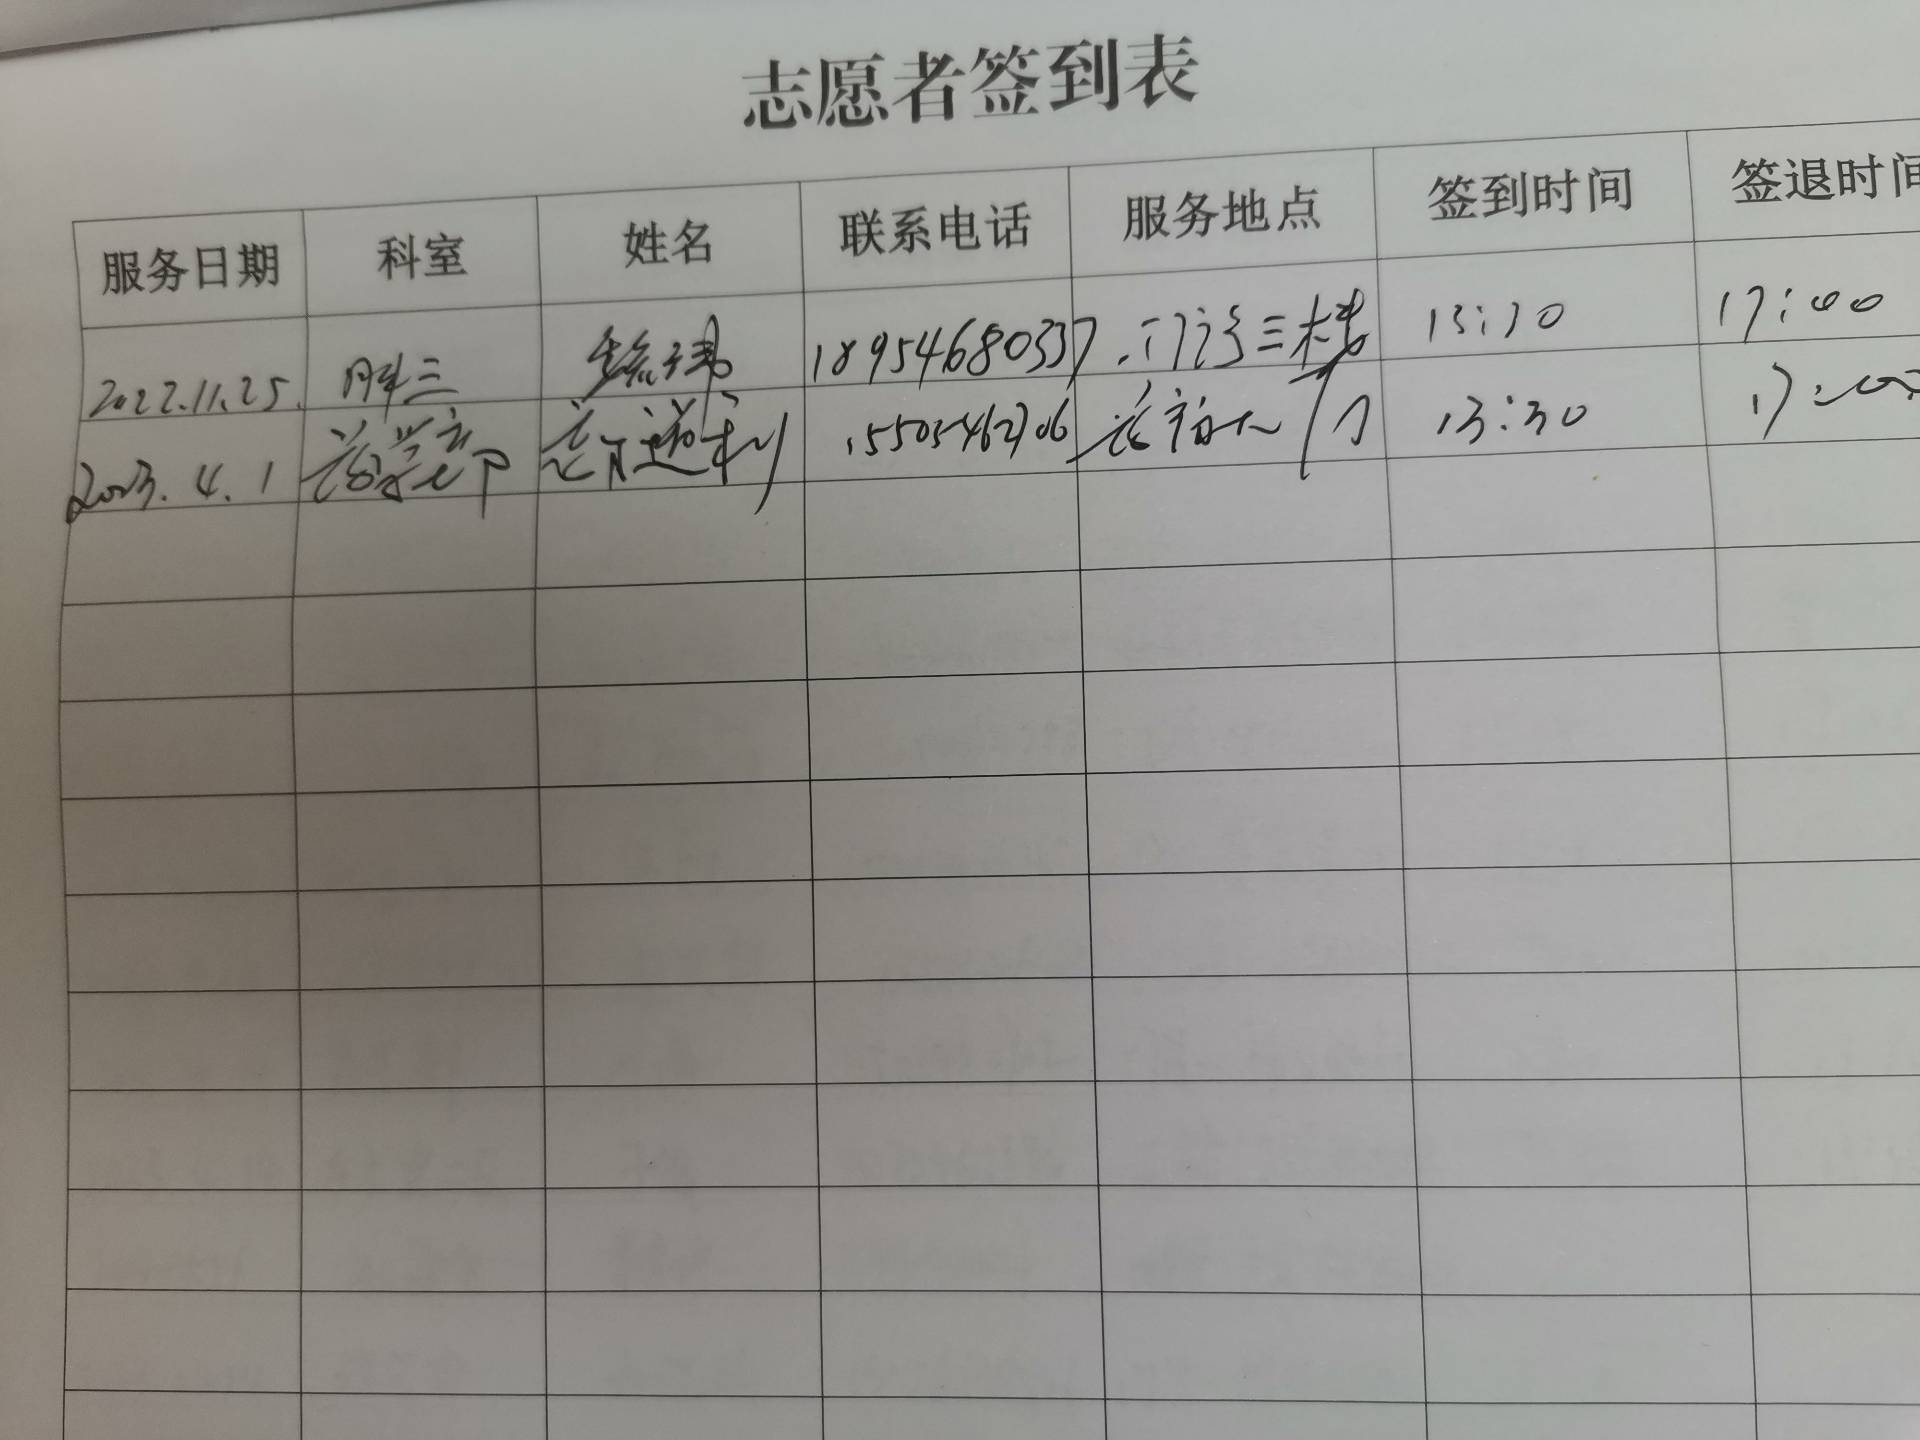 志愿者签到表
服务日期 科室 姓名 联系电话 服务地点 签到时间 签退时间
2022.11.25. 肿三 18954680337 门诊三楼 13:30 17:00
2023.4.1 药学部 15505462706 13:30 17:00